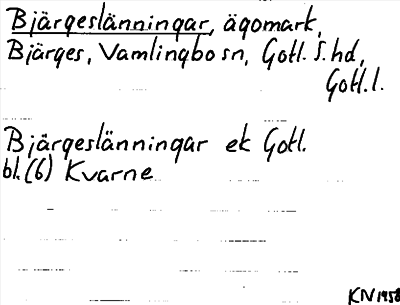 Bjärgeslänningar, ägomark,
Bjärges, Vamlingbo sn, Gotl. S. hd,
Gotl. l.
Bjärgeslänningar ek Gotl.
bl. (6) Kvarne
KN 1958